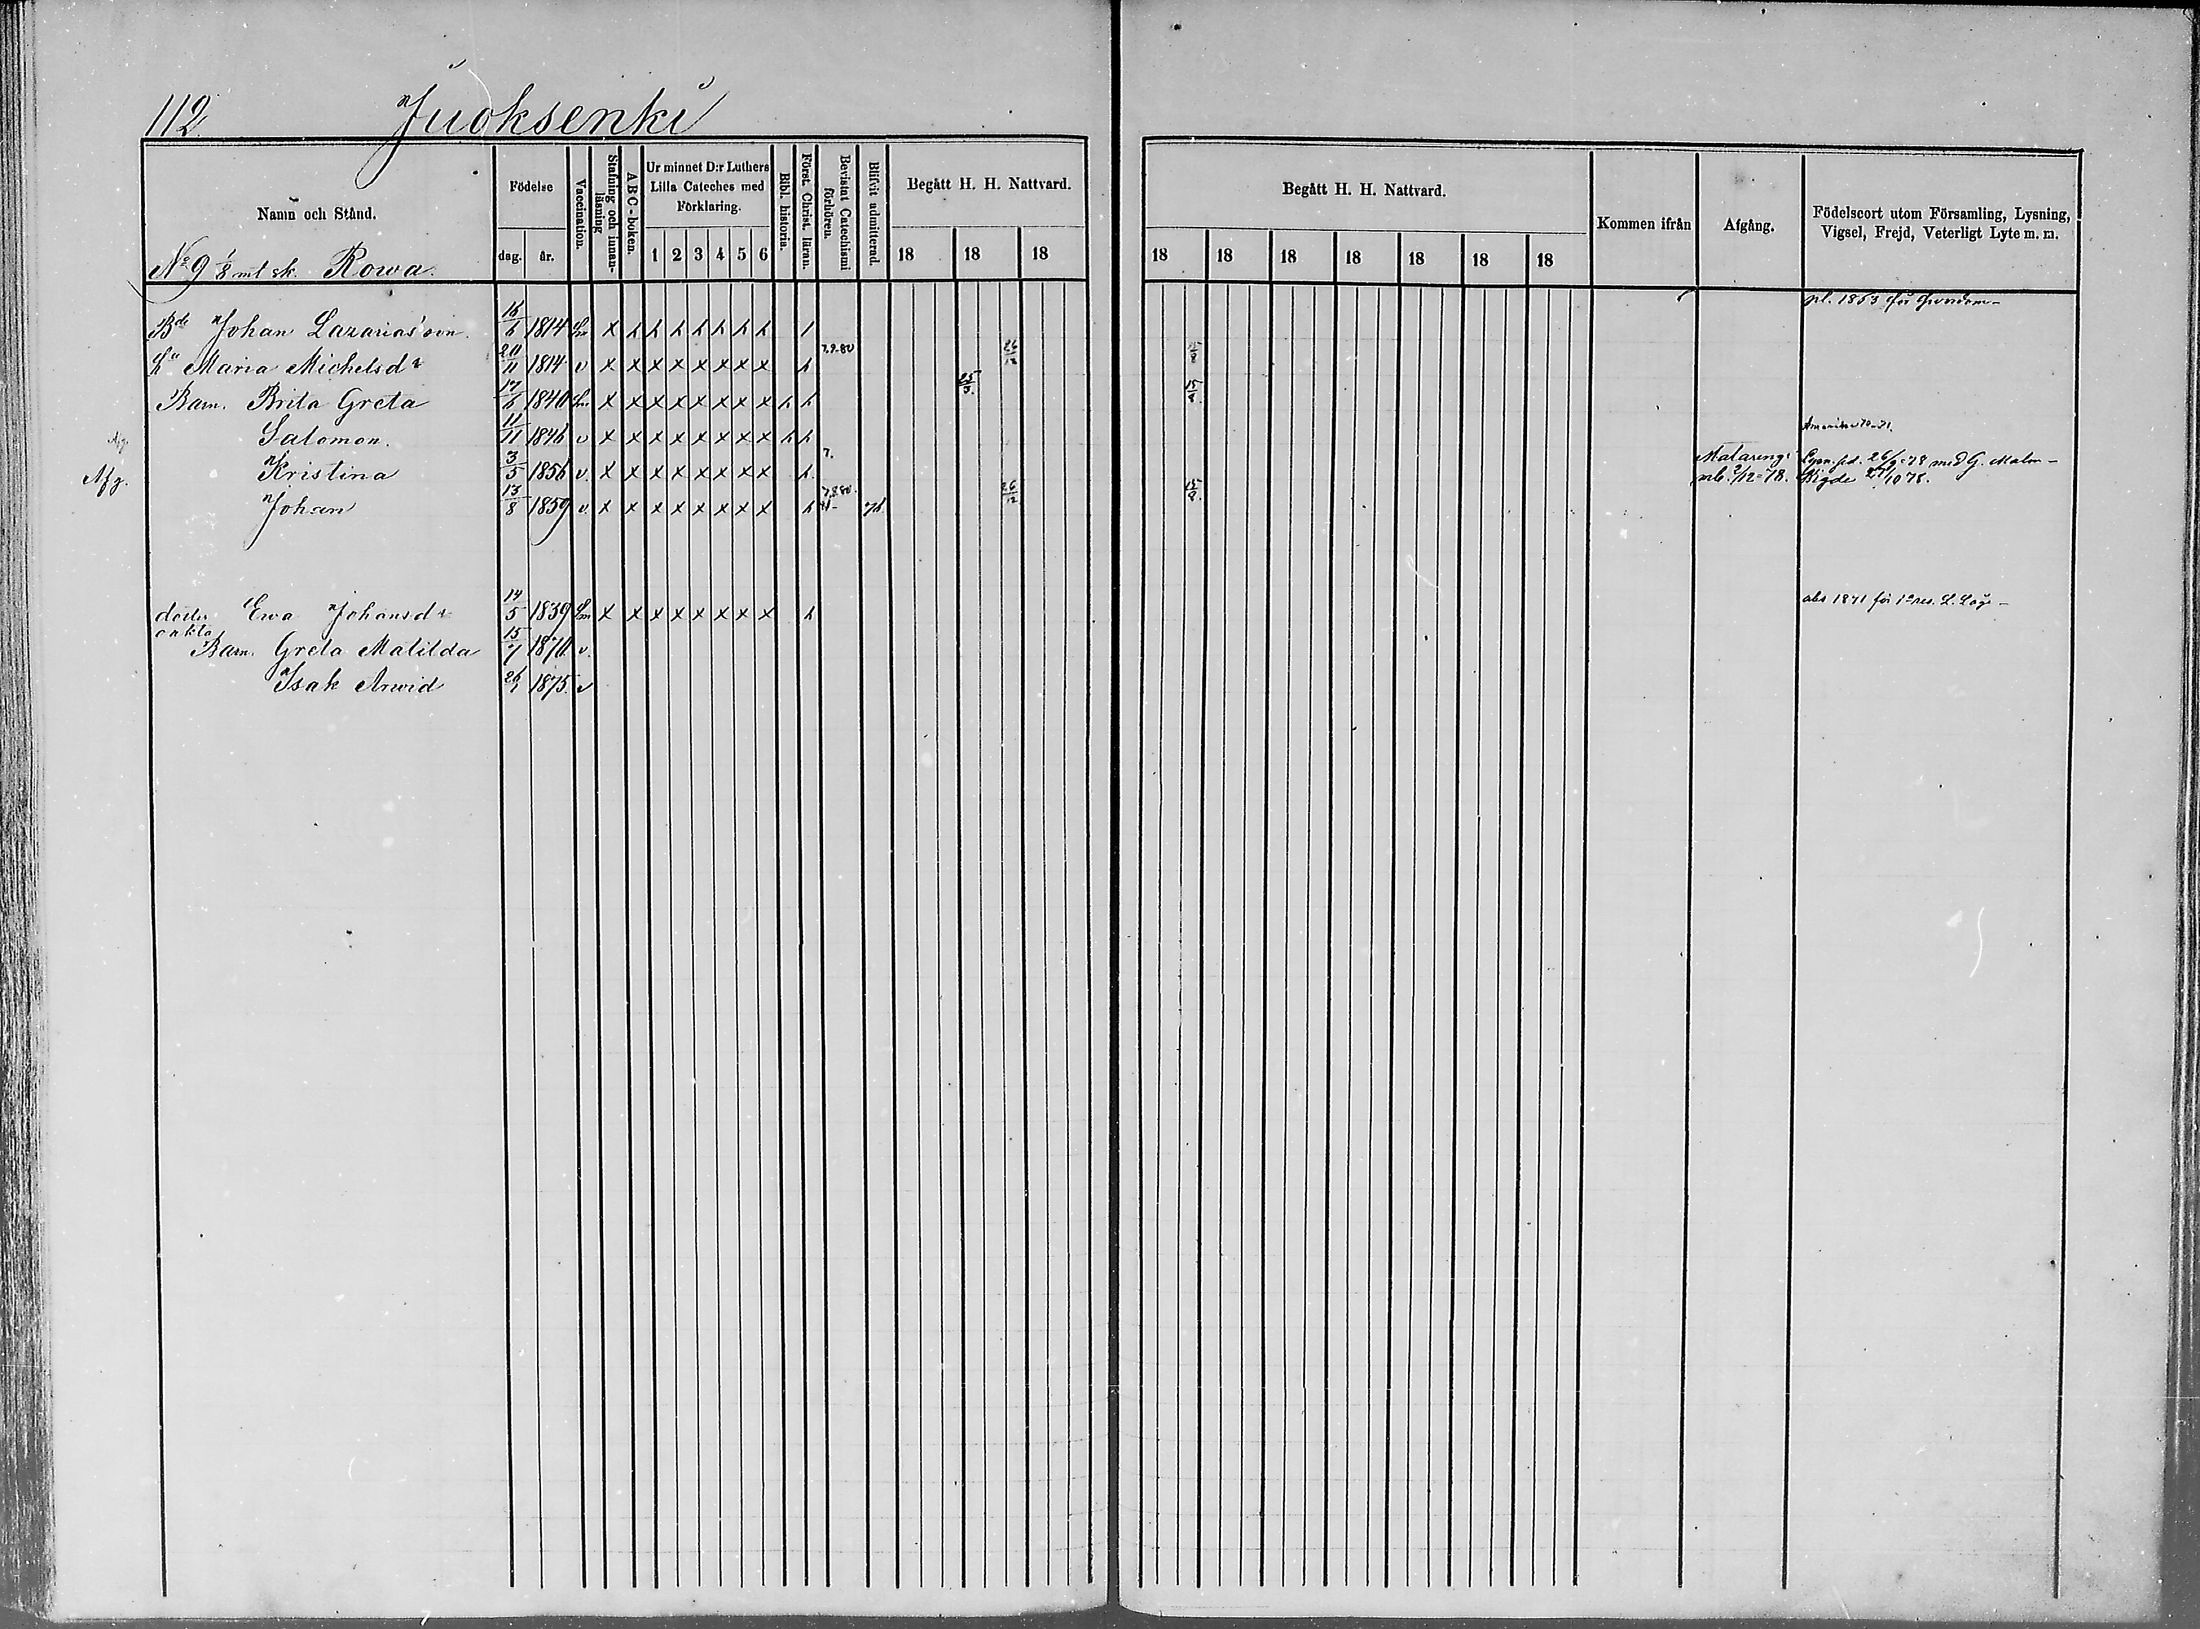 112. Juoksenki
Namn och Stånd.
Födelse
dag. år.
Vaccination.
Stafning och innan-
läsning
ABC-boken.
Ur minnet D:r Luthers
Lilla Cateches med
Förklaring.
1 2 3 4 5 6
Bibl. historia.
Först. Christ. läran.
Bevistat Catechismi
förhören.
Blifvit admitterad.
Begått H. H. Nattvard.
18 18 18
Begått H. H. Nattvard.
18 18 18 18 18 18 18
Kommen ifrån
Afgång.
Födelseort utom Församling, Lysning,
Vigsel, Frejd, Veterligt Lyte m. m.
No 9 1/8 mtl sk. Rowa.
Bde Johan Lazarias'son 16/6 1814 x h h h h h h h pl. 1863 för
Hu Maria Michelsdr 20/11 1814 v x x x x x x x x h 7.9.80 26/12 15/8
Barn. Brita Greta 17/6 1840 x x x x x x x x h h 25/3. 15/8.
Salomon. 11/11 1846 v x x x x x x x x h h Amerika 70-71.
Afg. Kristina 3/5 1856 v. x x x x x x x x h. 7. Matarengi Lysn. 26/9-78 med G. Malm-
2/12-78. Vigde 27/10 78.
Johan 13/8 1859 v. x x x x x x x x h 26/12 15/8.
dotter Ewa Johansdr 14/5 1839 x x x x x x x x h abs 1871 för 1a res. L. Läg-
enkla
Barn. Greta Matilda 15/7 1870. v.
Isak Arwid 26/1 1875. v